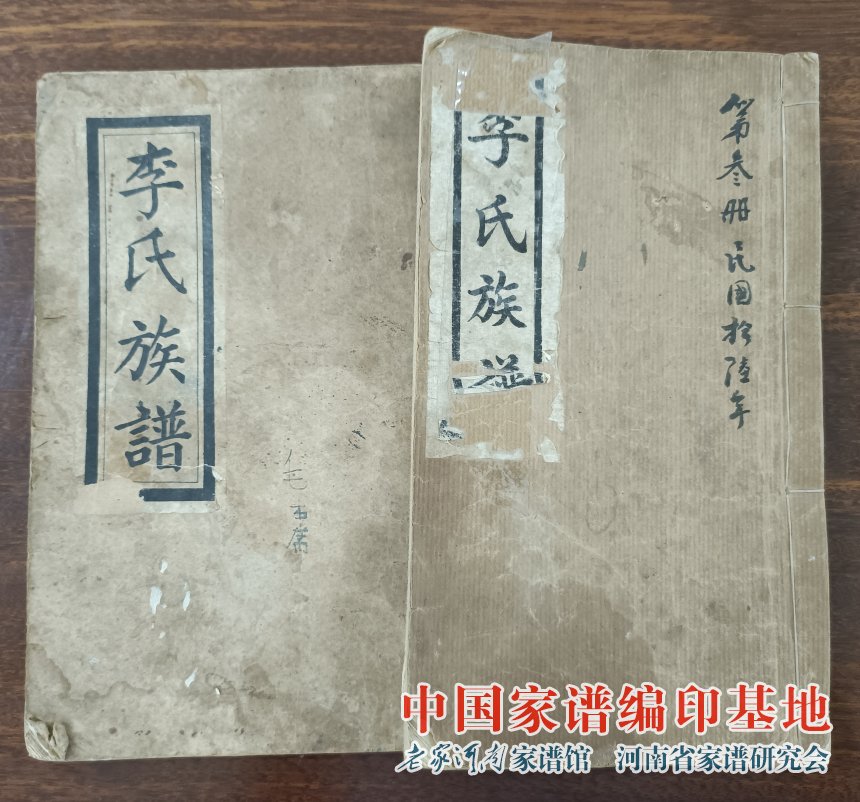 李氏族譜
李氏族
第叁册民国拾陸年
中国家谱编印基地
老家河南家谱馆 河南省家谱研究会